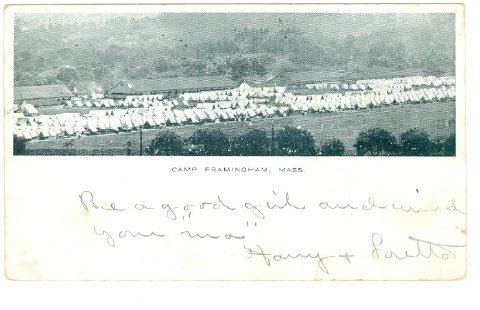 CAMP FRAMINGHAM, MASS.
Be a good girl and mind
your "ma"
Harry + Loretta